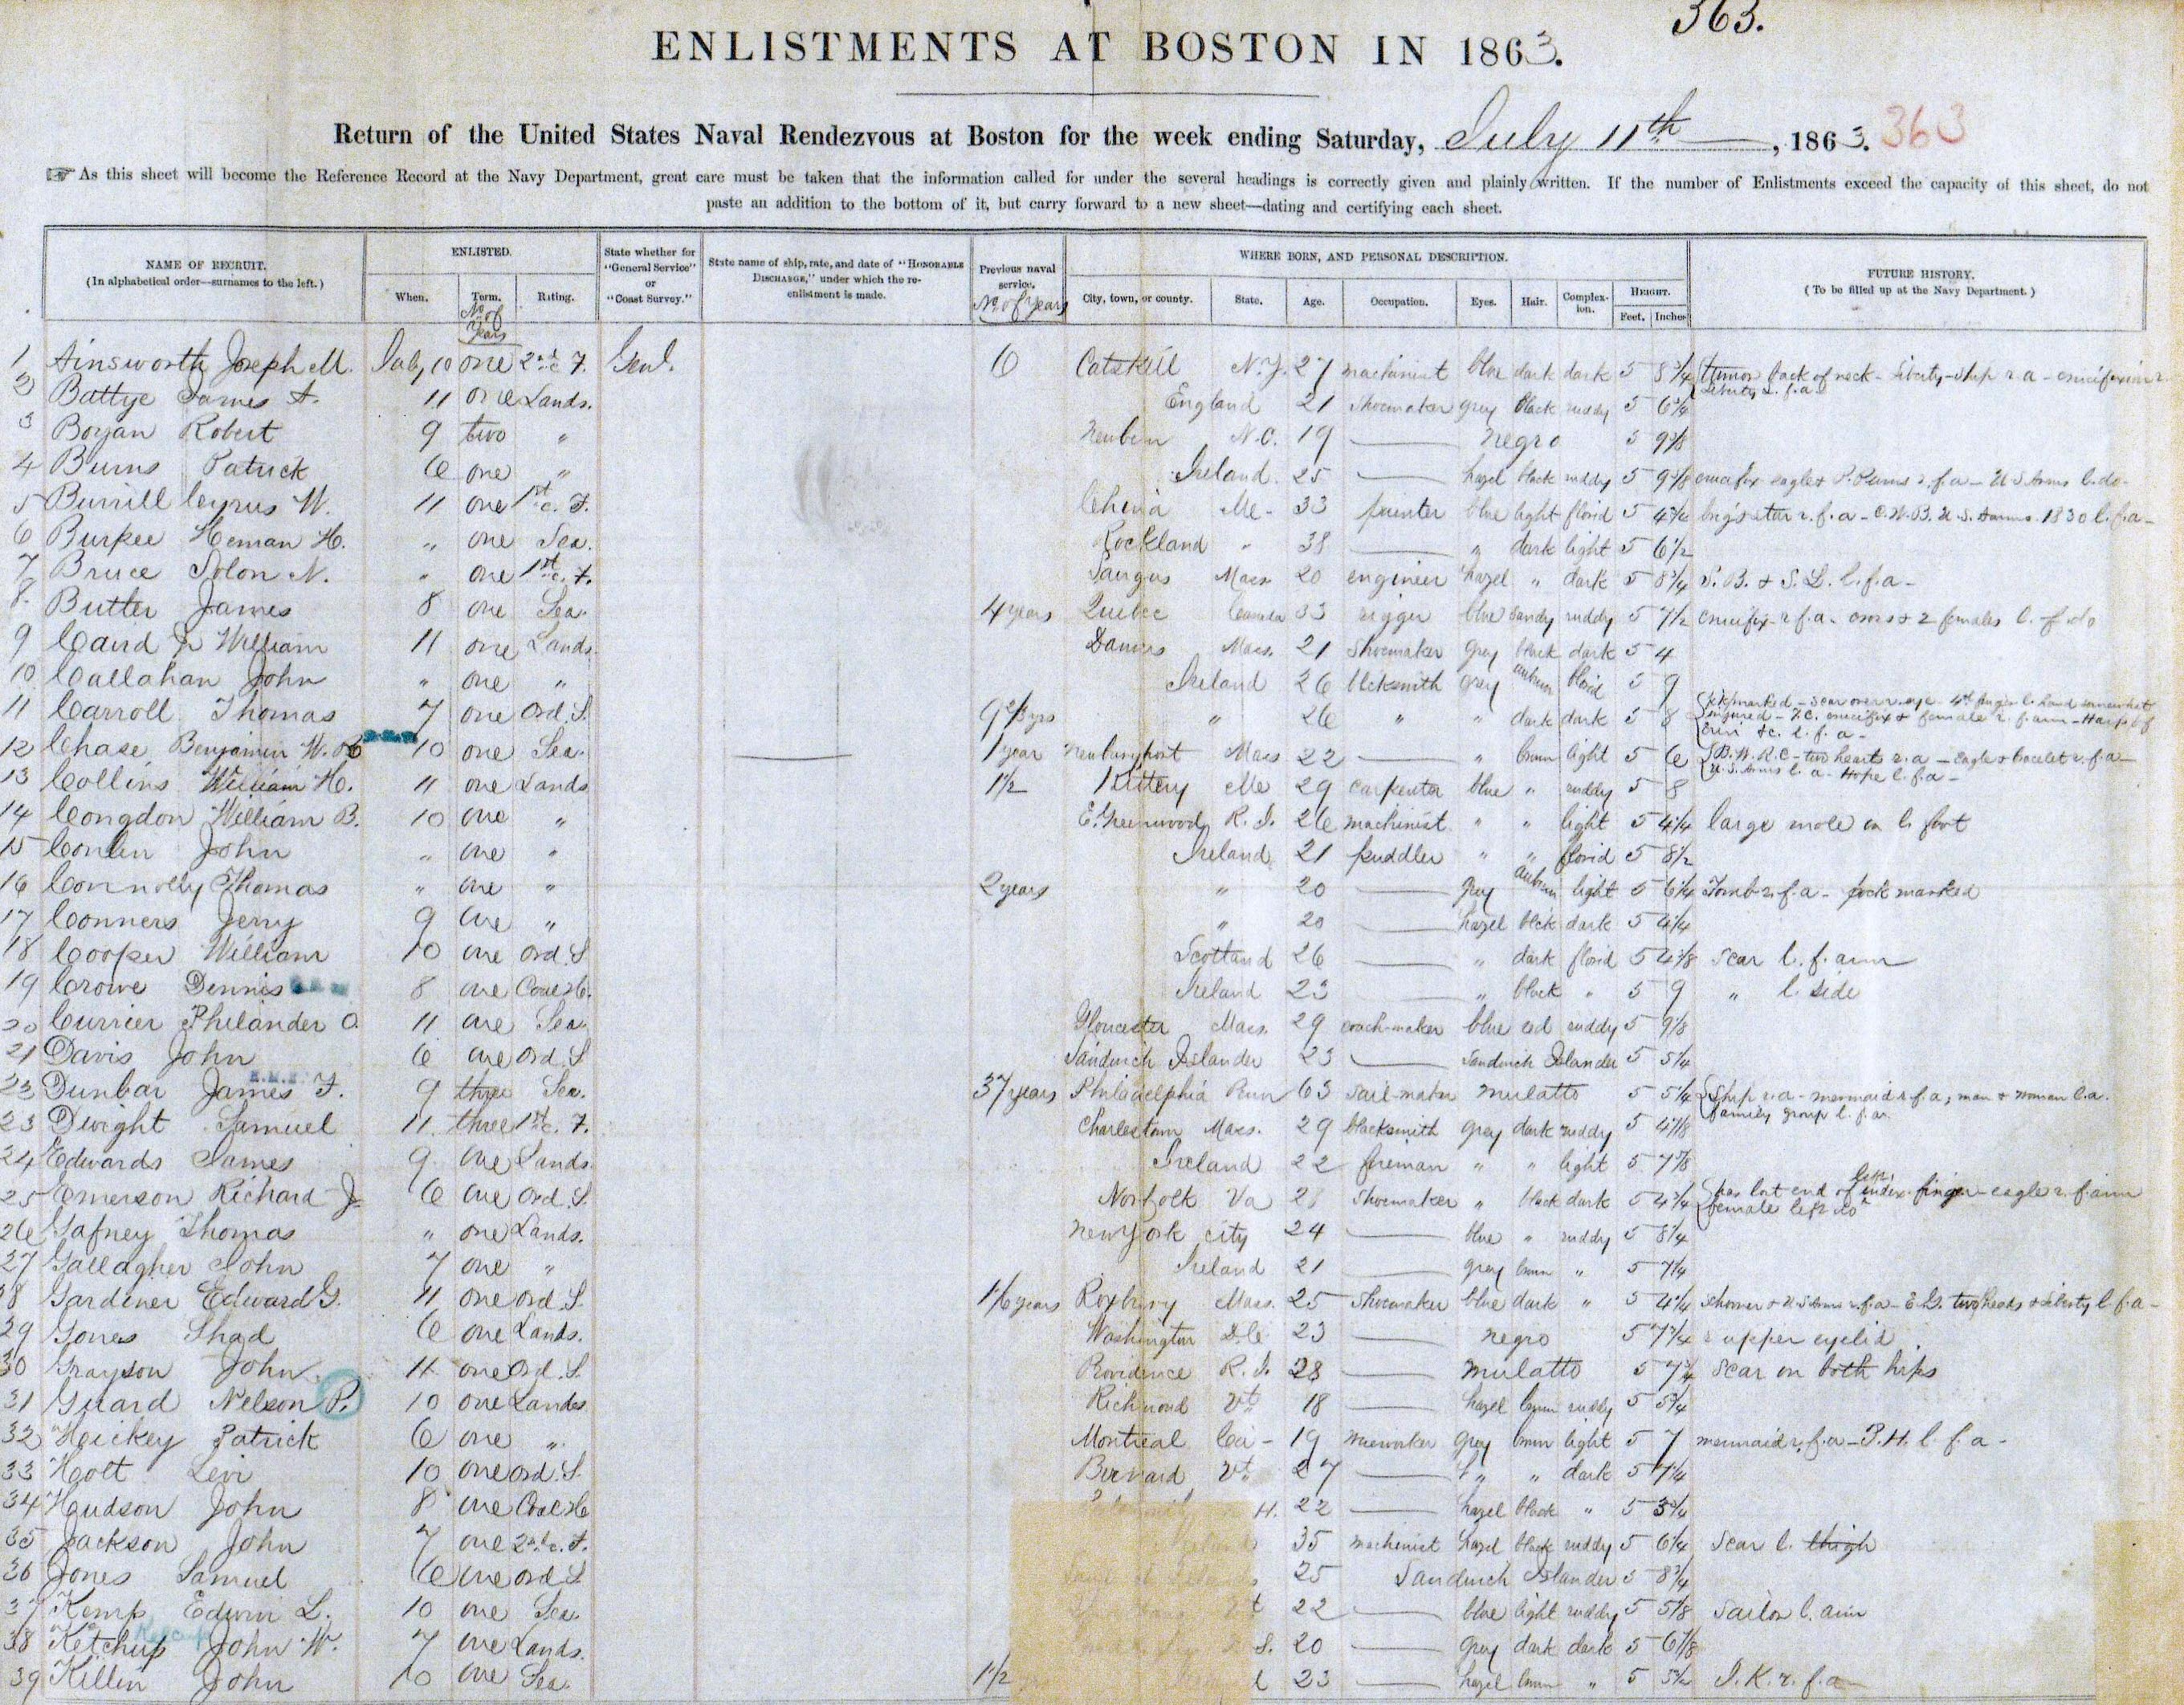 363.
ENLISTMENTS AT BOSTON IN 1863.
Return of the United States Naval Rendezvous at Boston for the week ending Saturday, July 11th, 1863. 363
☞ As this sheet will become the Reference Record at the Navy Department, great care must be taken that the information called for under the several headings is correctly given and plainly written. If the number of Enlistments exceed the capacity of this sheet, do not
paste an addition to the bottom of it, but carry forward to a new sheet—dating and certifying each sheet.
NAME OF RECRUIT. (In alphabetical order—surnames to the left.)
ENLISTED.
When. Term. No. of Years Rating.
State whether for "General Service" or "Coast Survey."
State name of ship, rate, and date of "HONORABLE DISCHARGE," under which the re-enlistment is made.
Previous naval service. No. of Years
WHERE BORN, AND PERSONAL DESCRIPTION.
City, town, or county. State. Age. Occupation. Eyes. Hair. Complexion. HEIGHT. Feet. Inches
FUTURE HISTORY. (To be filled up at the Navy Department.)
1 Ainsworth Joseph M. July 10 one 2nd c. F. Genl. 6 Catskill N.Y. 27 machinist blue dark dark 5 8 3/4
2 Battye James A. 11 one Lands. England 21 shoemaker grey black ruddy 5 6 1/4
3 Boyan Robert 9 two " Newbern N.C. 19 — negro 5 9 3/8
4 Burns Patrick 6 one " Ireland 25 — hazel black ruddy 5 9 3/8 crucifix eagle & P. Burns r. f. a - U S Arms l. do.
5 Burrill Cyrus W. 11 one 1st c. F. China Me. 33 painter blue light florid 5 4 3/4
6 Burkee Heman H. " one Sea. Rockland " 38 — " dark light 5 6 1/2
7 Bruce Solon N. " one 1st c. F. Saugus Mass 20 engineer hazel " dark 5 8 3/4 S. B. & S. L. l. f. a -
8 Butler James 8 one Sea. 4 years Quebec Canada 33 rigger blue sandy ruddy 5 7 1/2 crucifix r. f. a. cross & 2 females l. f. do
9 Caird Jr William 11 one Lands. Danvers Mass. 21 shoemaker grey black dark 5 4
10 Callahan John " one " Ireland 26 blcksmith grey auburn florid 5 9
11 Carroll Thomas 7 one Ord. S. 9 2/3 yrs " 26 " " dark dark 5 8
12 Chase Benjamin W. R 10 one Sea. 1 year Newburyport Mass 22 — " brown light 5 6 B. W. R. C - two hearts r. a - eagle & bracelet r. f. a -
U. S. Arms l. a - Hope l. f. a -
13 Collins William H. 11 one Lands 1 1/2 Kittery Me 29 carpenter blue " ruddy 5 8
14 Congdon William B. 10 one " E. Greenwood R. I. 26 machinist " " light 5 4 1/4 large mole on l. foot
15 Conlin John " one " Ireland 21 puddler " " florid 5 8 1/2
16 Connolly Thomas " one " 2 years " 20 — grey auburn light 5 6 1/4 Tomb r. f. a - pock marked
17 Conners Jerry 9 one " " 20 — hazel blck dark 5 4 1/4
18 Cooper William 10 one Ord. S Scotland 26 — " dark florid 5 4 3/8 scar l. f. arm
19 Crowe Dennis 8 one Coal H. Ireland 23 — " black " 5 9 " l. side
20 Currier Philander O. 11 one Sea. Gloucester Mass. 29 coach-maker blue red ruddy 5 9 1/8
21 Davis John 6 one Ord. S Sandwich Islander 23 — Sandwich Islander 5 5 1/4
23 Dunbar James F. 9 three Sea. 37 years Philadelphia Penn 63 sail-maker mulatto 5 5 1/4 ship r. a - mermaid r. f. a, man & woman l. a.
family group l. f. a.
23 Dwight Samuel 11 three 1st c. F. Charlestown Mass. 29 blacksmith grey dark ruddy 5 4 7/8
24 Edwards James 9 one Lands. Ireland 22 fireman " " light 5 7 5/8
25 Emerson Richard J. 6 one Ord. S. Norfolk Va 28 shoemaker " black dark 5 4 3/4 has lost end of left index finger - eagle r. f. arm
female left do
26 Gafney Thomas " one Lands. New York city 24 — blue " ruddy 5 8 1/4
27 Gallagher John 7 one " Ireland 21 — grey brown " 5 7 1/4
28 Gardiner Edward G. 11 one Ord. S. 1 1/6 years Roxbury Mass. 25 shoemaker blue dark " 5 4 1/4 schooner & U S Arms r. f. a - E. G. two heads & Liberty l. f. a -
29 Gones Shad 6 one Lands. Washington D.C. 23 — negro 5 7 3/4 r upper eyelid
30 Grayson John 11 one Ord. S. Providence R. I. 28 — mulatto 5 7 3/4 scar on both hips
31 Guard Nelson P. 10 one Lands Richmond Vt 18 — hazel brown ruddy 5 5 3/4
32 Hickey Patrick 6 one " Montreal Ca - 19 grey brown light 5 7 mermaid r. f. a - P. H. l. f. a -
33 Holt Levi 10 one Ord. S. Barnard Vt. 27 — " " dark 5 7 1/4
34 Hudson John 8 one Coal H H. 22 — hazel black " 5 3 3/4
35 Jackson John 7 one 2nd c. F. Ireland 35 machinist hazel black ruddy 5 6 1/4 scar l. thigh
36 Jones Samuel 6 one Ord. S 25 Sandwich Islander 5 8 3/4
37 Kemp Edwin L. 10 one Sea. 22 — blue light ruddy 5 5 1/8 sailor l. arm
38 Ketchup Ketchup John W. 7 one Lands. 20 — grey dark dark 5 6 7/8
39 Killin John 10 one Sea. 1 1/2 23 — hazel brown " 5 5 1/2 J. K. r. f. a -